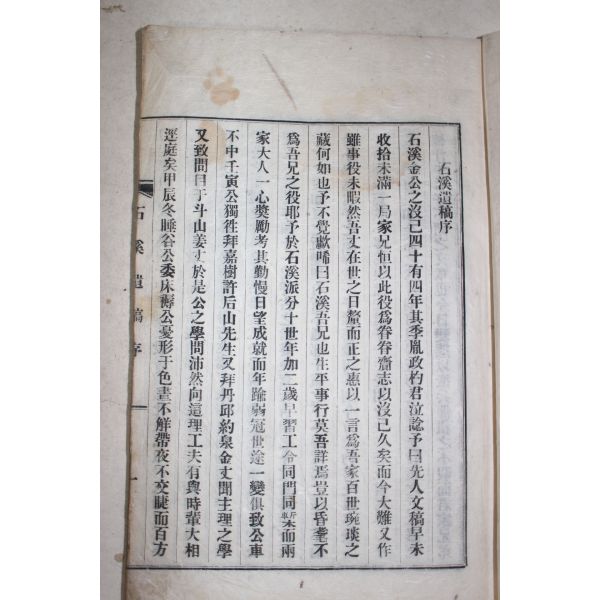 石溪遺稿序
石溪金公之沒已四十有四年其季胤政杓君泣諗予曰先人文稿早未
收拾未滿一局家兄恒以此役爲眷眷齎志以沒已久矣而今大難又作
雖事役未暇然吾丈在世之日釐而正之惠以一言爲吾家百世琬琰之
藏何如也予不覺歔唏曰石溪吾兄也生平事行莫吾詳焉豈以昏耄不
爲吾兄之役耶予於石溪派分十世年加二歲早習工令同門同槧而兩
家大人一心奬勵考其勤慢日望成就而年踰弱冠世途一變俱致公車
不中壬寅公獨徃拜嘉樹許后山先生又拜丹邱約泉金丈聞主理之學
又致問目于斗山姜丈於是公之學問沛然向這理工夫有與時輩大相
逕庭矣甲辰冬睡谷公委床褥公憂形于色晝不解帶夜不交睫而百方
石溪遺稿序
一